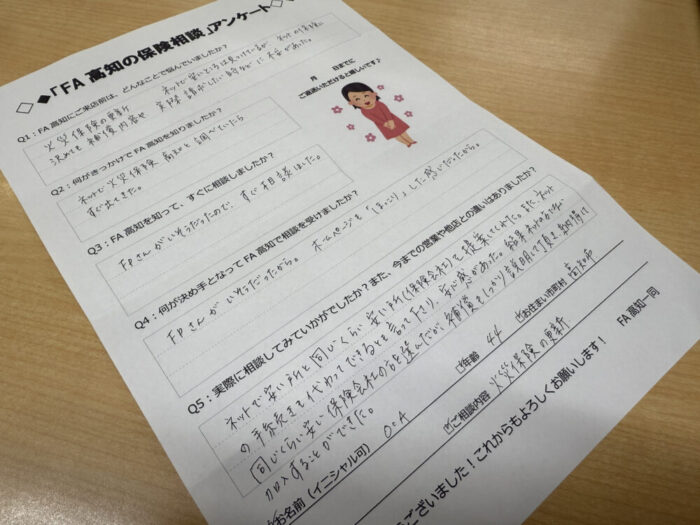 ◇◆「FA 高知の保険相談」アンケート◆◇
月 日までに
ご返送いただけると嬉しいです♪
Q1：FA 高知にご来店前は、どんなことで悩んでいましたか？
火災保険の更新 ネットで安いところは見つけているが ネットの保険に
決めても補償内容や 実際 請求したい時などに 不安があった。
Q2：何がきっかけで FA 高知を知りましたか？
ネットで火災保険 高知と調べていたら
すぐ出てきた。
Q3：FA 高知を知って、すぐに相談しましたか？
FPさんがいそうだったので、すぐ相談はした。
Q4：何が決め手となって FA 高知で相談を受けましたか？
FPさんが いそうだったから。 ホームページも「ほっこり」した感じだったから。
Q5：実際に相談してみていかがでしたか？また、今までの営業や他店との違いはありましたか？
ネットで安い所と同じくらい安い所(保険会社)を提案してくれた。また、ネット
の手続きも代わってできるとも言ってたり、安心感があった。結果 ネットのとこが
同じくらい安い保険会社の方を選んだが、補償もしっかり説明して頂き 納得して
加入することができた。
お名前（イニシャル可） O.A 年齢 44 お住まい市町村 高知市
ご相談内容 火災保険の更新
ございました！これからもよろしくお願いします！
FA 高知一同